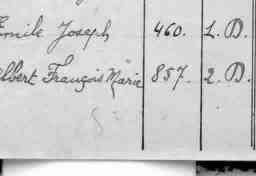 Emile Joseph 460. 1. D.
Albert François Marie 857. 2. D.